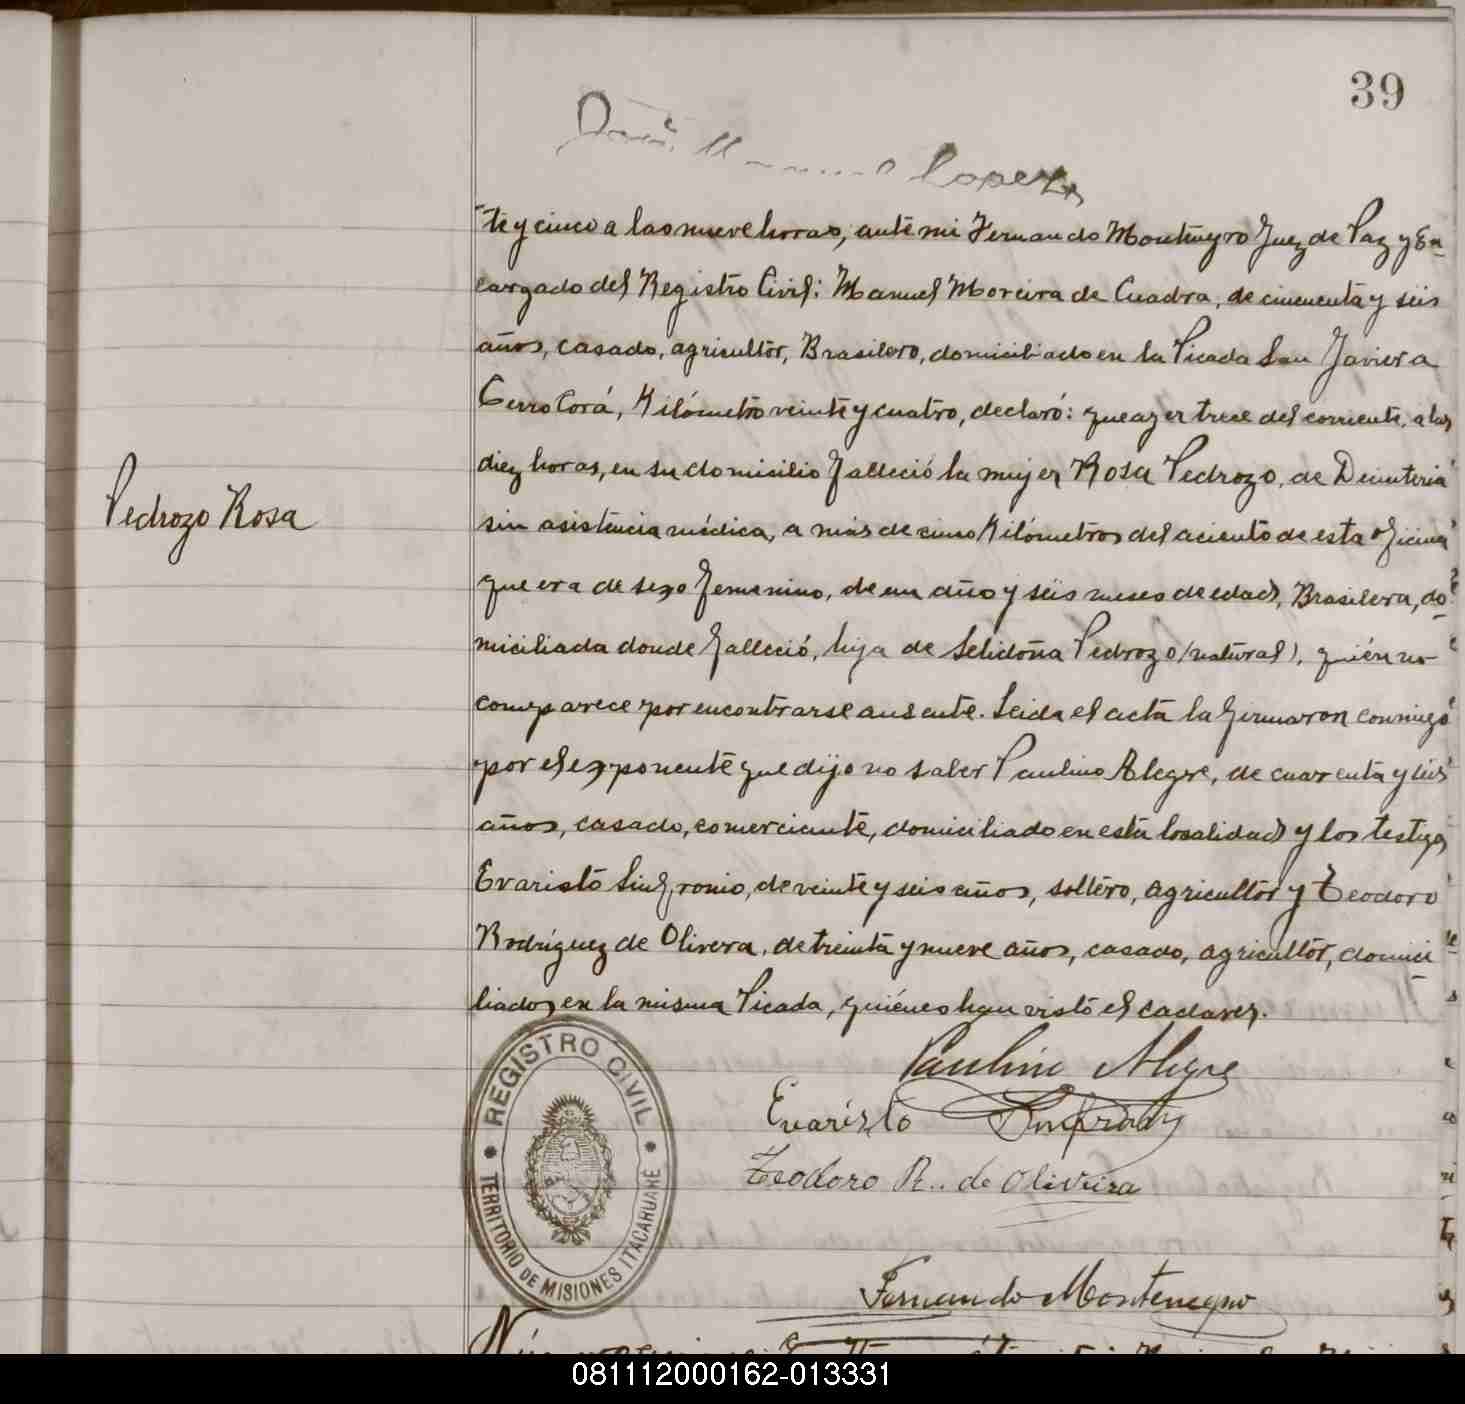 39
Lopez
te y cinco a las nueve horas, ante mi Fernando Montenegro Juez de Paz y En-
cargado del Registro Civil: Manuel Moreira de Cuadra, de cincuenta y seis
años, casado, agricultor, Brasilero, domiciliado en la Picada San Javier a
Cerro Corá, Kilómetro veinte y cuatro, declaró: que ayer trece del corriente, a las
diez horas, en su domicilio falleció la mujer Rosa Pedrozo, de Dicinteria
Pedrozo Rosa
sin asistencia médica, a más de cinco Kilómetros del aciento de esta oficina
que era de sexo femenino, de un año y seis meses de edad, Brasilera, do-
miciliada donde falleció, hija de Selidoña Pedrozo (natural), quién no
comparece por encontrarse ausente. Leida el acta la firmaron conmigo
por el exponente que dijo no saber Paulino Alegre, de cuarenta y seis
años, casado, comerciante, domiciliado en esta localidad y los testigos
Evaristo Sinfronio, de veinte y seis años, soltero, agricultor y Teodoro
Rodríguez de Olivera, de treinta y nueve años, casado, agricultor, domici-
liados en la misma Picada, quiénes han visto el cadaver.
Paulino Alegre
Evaristo
Teodoro R. de Oliveira
REGISTRO CIVIL
TERRITORIO DE MISIONES ITACARUARÉ
Fernando Montenegro
081112000162-013331